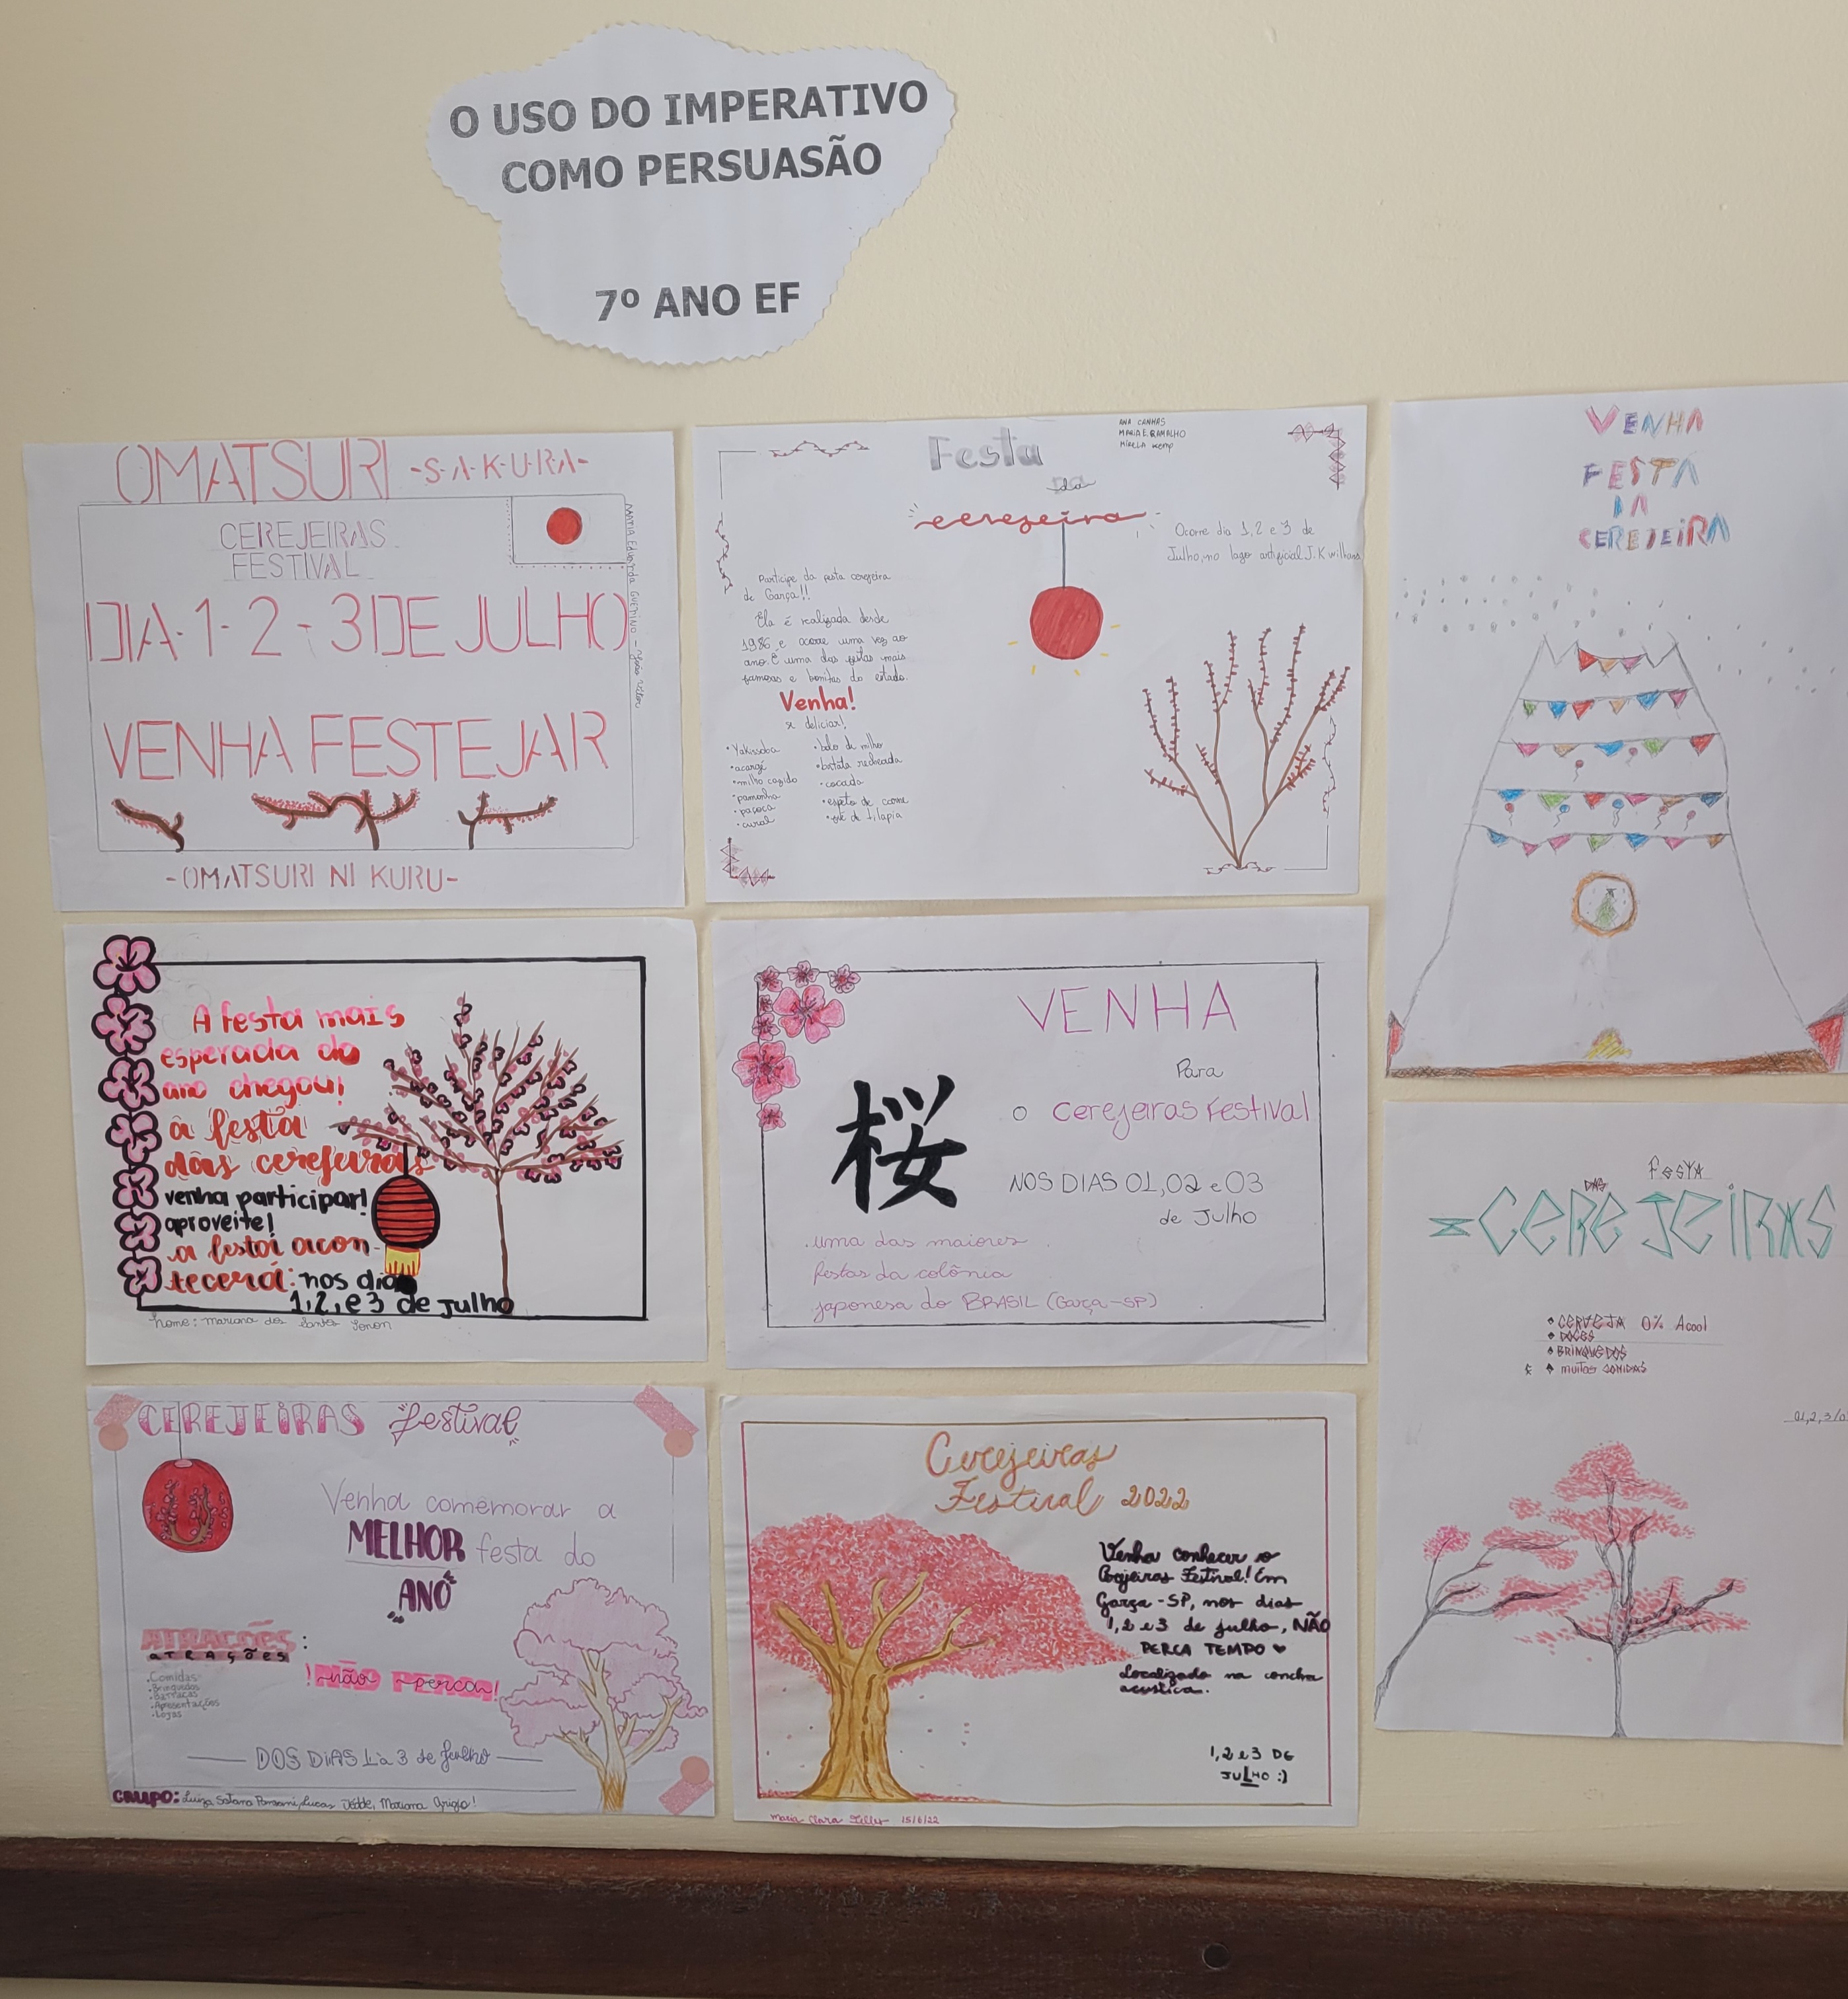 O USO DO IMPERATIVO
COMO PERSUASÃO
7º ANO EF
OMATSURI -S-A-K-U-R-A-
CEREJEIRAS
FESTIVAL
DIA 1 - 2 - 3 DE JULHO
VENHA FESTEJAR
-OMATSURI NI KURU-
Maria Eduarda Guerino - João Vitor
Festa
da
cerejeira
ANA CANHAS
MARIA E. RAMALHO
MIRELLA KEMP
Ocorre dia 1,2 e 3 de
Julho, no lago artificial J.K willians
Participe da festa cerejeira
de Garça!!
Ela é realizada desde
1986 e ocorre uma vez ao
ano. É uma das festas mais
famosas e bonitas do estado.
Venha!
se deliciar!
•Yakissoba
•acarajé
•milho cozido
•pamonha
•paçoca
•cural
•bolo de milho
•batata recheada
•cocada
•espeto de carne
de tilapia
VENHA
FESTA
DA
CEREJEIRA
A festa mais
esperada do
ano chegou!
a festa
das cerejeiras
venha participar!
aproveite!
a festa acon-
tecerá: nos dia
1,2, e 3 de Julho
Nome: Mariana dos Santos
VENHA
Para
o cerejeiras Festival
桜
NOS DIAS 01,02 e 03
de Julho
.uma das maiores
festas da colônia
japonesa do BRASIL (Garça-SP)
FESTA
DAS
CEREJEIRAS
CERVEJA 0% Acool
DOCES
BRINQUEDOS
E muitas COMIDAS
01,2,3/0
CEREJEIRAS festival
Venha comemorar a
MELHOR festa do
ANO
ATRAÇÕES:
ATRAÇÕES
.Comidas
.Brinquedos
.Barracas
.Apresentações
.Lojas
!não perca!
DOS DIAS 1 à 3 de Julho
GRUPO: Luiza Lucas Mariana
Cerejeiras
Festival 2022
Venha conhecer o
Cerejeiras Festival! Em
Garça-SP, nos dias
1,2 e 3 de julho, NÃO
PERCA TEMPO ♥
Localizado na concha
acustica.
1,2 e 3 DE
JULHO :)
Maria Clara 15/6/22